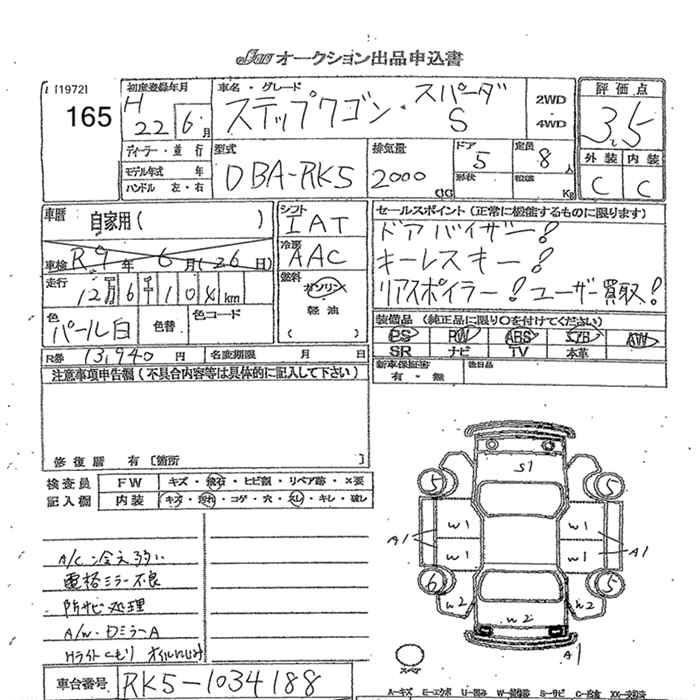 JAA オークション出品申込書
[1972]
165
初度登録年月
H
22 6月
車名・グレード
ステップワゴン・スパーダ
S
2WD
4WD
評価点
3.5
外装 内装
C C
ディーラー・並行
モデル年式 年
ハンドル 左・右
型式
DBA-RK5
排気量
2000
CC
ドア
5
定員
8人
形状
積載
Kg
車歴
自家用( )
車検 R9年6月(26日)
走行
12万6千104km
色
パール白
色替
色コード
シフト
IAT
冷房
AAC
燃料
ガソリン
軽油
( )
セールスポイント(正常に機能するものに限ります)
ドアバイザー!
キーレスキー!
リアスポイラー! ユーザー買取!
装備品 (純正品に限り○を付けてください)
PS PW ABS エアB AW
SR ナビ TV 本革
新車保証書
有・無
後日品
R券 13,940円 名変期限 月 日
注意事項申告欄(不具合内容等は具体的に記入して下さい)
修復歴 有 [箇所 ]
検査員
記入欄
FW キズ・飛石・ヒビ割・リペア跡・×要
内装 キズ・汚れ・コゲ・穴・スレ・キレ・破レ
A/C冷え弱い
電格ミラー不良
防サビ処理
A/W・DミラーA
HライトくもりオイルにじみA
車台番号 RK5-1034188
S1
5 5
W1 W1
A1 A1
W1 W1
6 5
W2 W2 W2
A1
スペア
A-キズ E-エクボ U-凹み W-補修跡 S-サビ C-腐食 XX-交換済